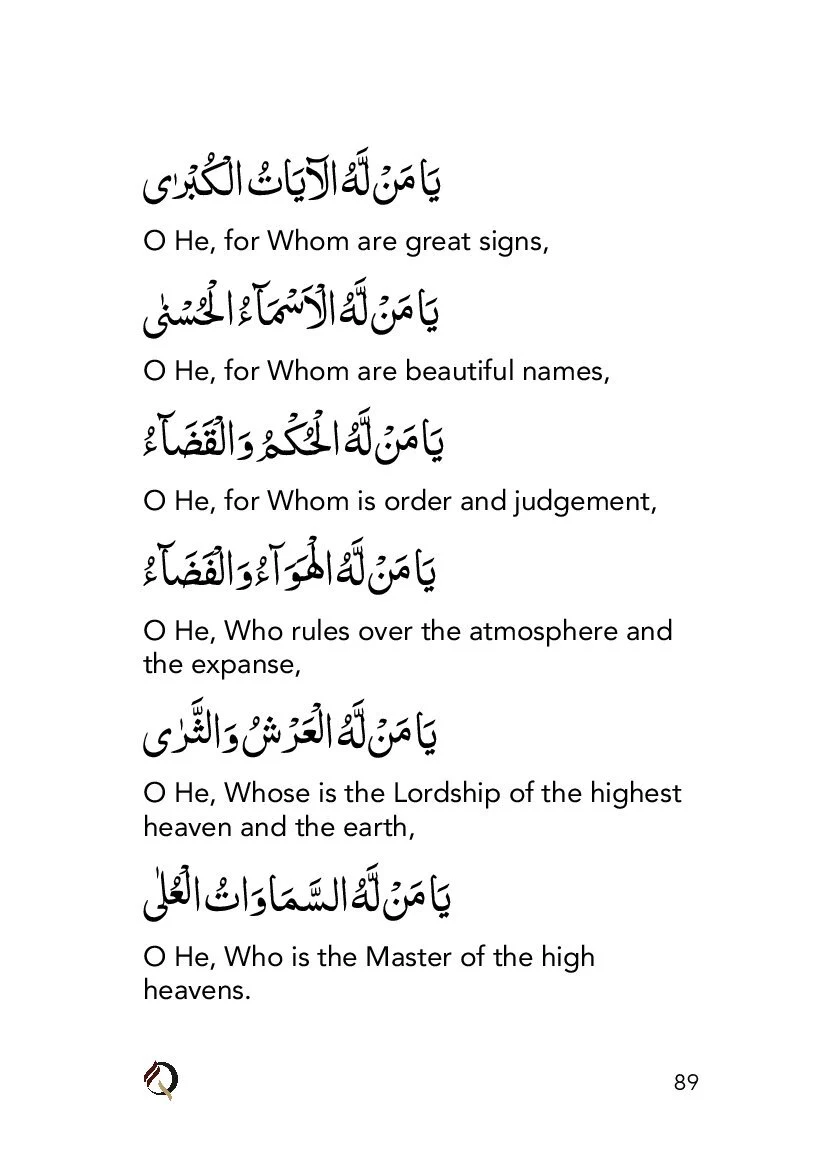 يَا مَنْ لَّهُ الْآيَاتُ الْكُبْرٰى
O He, for Whom are great signs,
يَا مَنْ لَّهُ الْاَسْمَآءُ الْحُسْنٰى
O He, for Whom are beautiful names,
يَا مَنْ لَّهُ الْحُكْمُ وَالْقَضَآءُ
O He, for Whom is order and judgement,
يَا مَنْ لَّهُ الْهَوَآءُ وَالْفَضَآءُ
O He, Who rules over the atmosphere and
the expanse,
يَا مَنْ لَّهُ الْعَرْشُ وَالثَّرٰى
O He, Whose is the Lordship of the highest
heaven and the earth,
يَا مَنْ لَّهُ السَّمَاوَاتُ الْعُلٰى
O He, Who is the Master of the high
heavens.
89